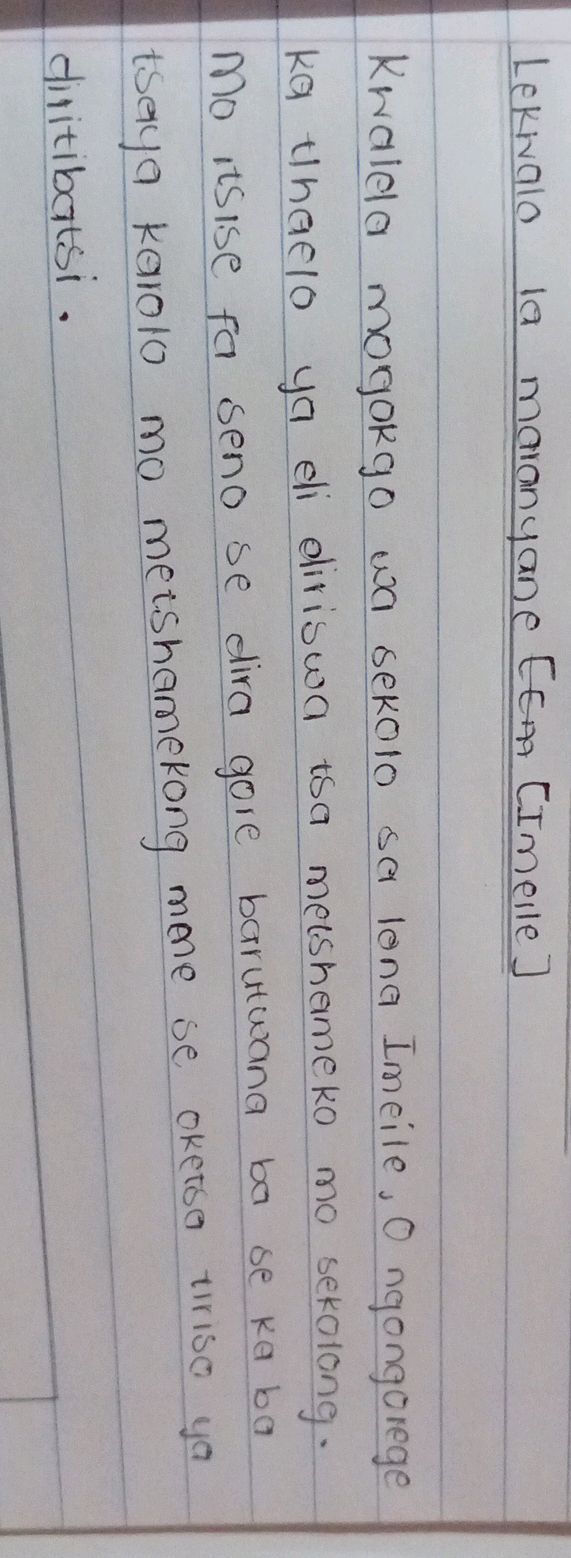 Lekwalo la maranyane [Em [Imeile]
Kwalela mogokgo wa sekolo sa lona Imeile, O ngongorege
ka tlhaelo ya di diriswa tsa metshameko mo sekolong.
Mo itsise fa seno se dira gore barutwana ba se ka ba
tsaya karolo mo metshamekong mme se oketsa tiriso ya
diritibatsi.